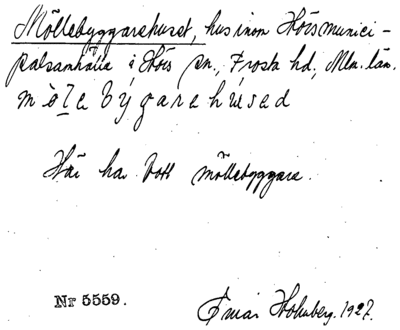 Möllebyggarehuset, hus inom Hörs munici-
palsamhälle i Hörs sn., Frosta hd, Mlm. län.
mö̀le býgarehúsed
Här har bott möllebyggare.
Nr 5559.
Einar Holmberg. 1927.